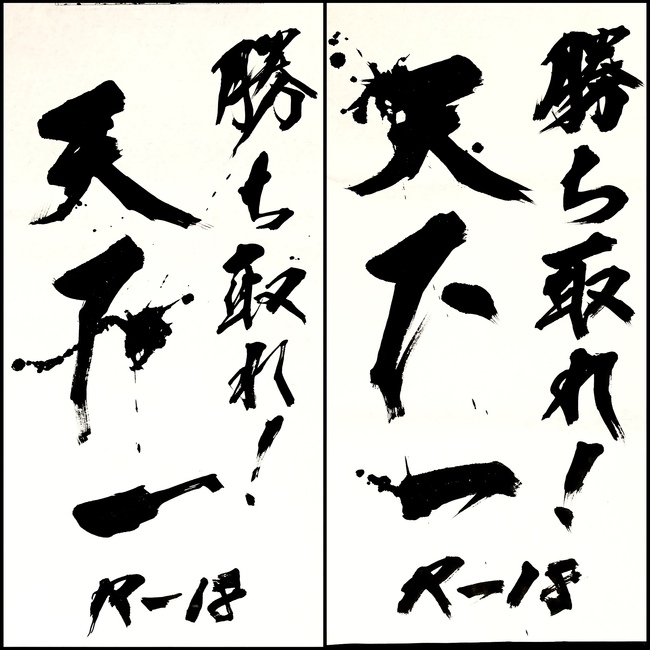 勝ち取れ!
天下一
R-18
勝ち取れ!
天下一
R-18